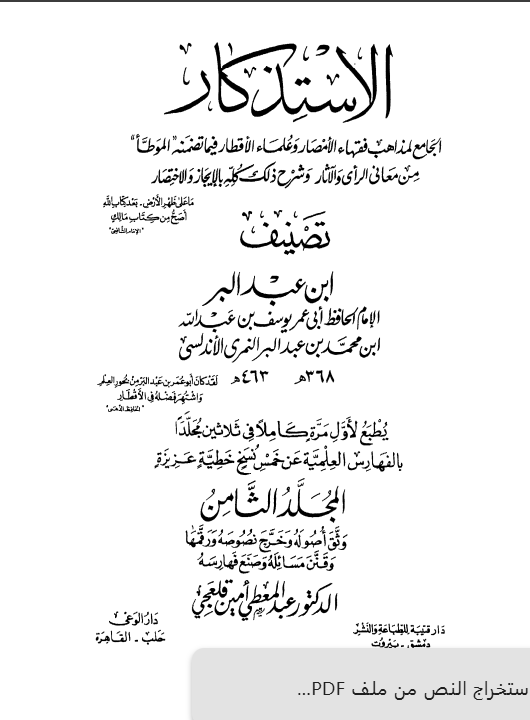 الاستذكار
الجامع لمذاهب فقهاء الأمصار وعلماء الأقطار فيما تضمنه "الموطأ"
من معاني الرأى والآثار وشرح ذلك كله بالإيجاز والاختصار
ما على ظهر الأرض - بعد كتاب الله
أصح من كتاب مالك
"الإمام الشافعي"
تصنيف
ابن عبد البر
الإمام الحافظ أبي عمر يوسف بن عبد الله
ابن محمد بن عبد البر النمرى الأندلسى
٣٦٨هـ ٤٦٣هـ
لقد كان أبو عمر بن عبد البر من بحور العلم
واشتهر فضله في الأقطار
"الحافظ الذهبى"
يُطبع لأوّل مرّة كاملًا في ثلاثين مجلّدًا
بالفهارس العلمية عن خمس نسخ خطية عزيزة
المجلّد الثّامن
وثّق أصوله وخرّج نصوصه ورقّمها
وقنّن مسائله وصنع فهارسه
الدكتور عبد المعطي أمين قلعجي
دار قتيبة للطباعة والنشر
دمشق - بيروت
دار الوعي
حلب - القاهرة
ستخراج النص من ملف PDF...